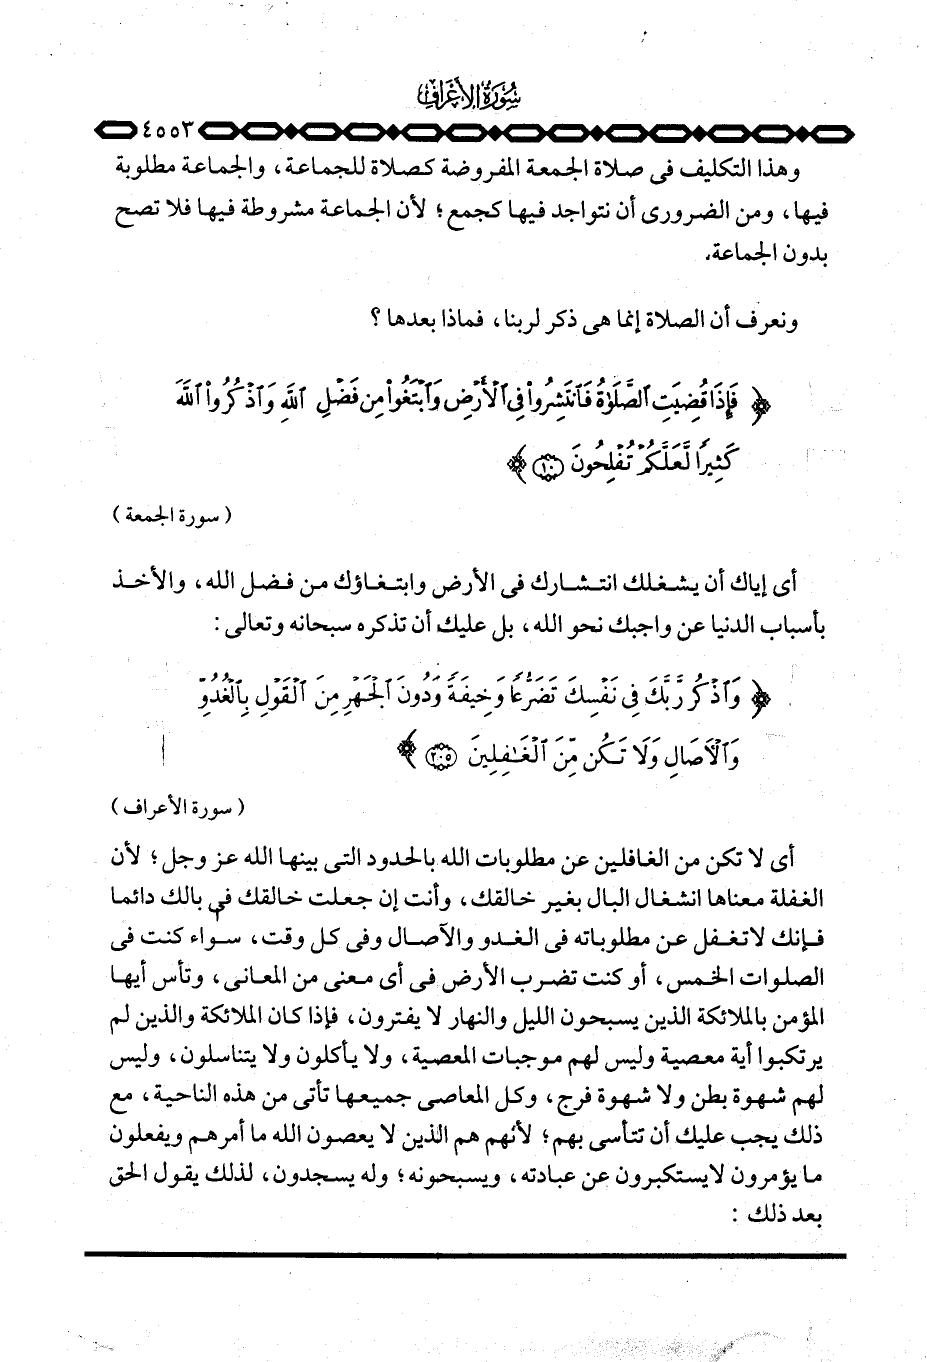 سُورَةُ الأَعْرَافِ
٤٥٥٣
وهذا التكليف فى صلاة الجمعة المفروضة كصلاة للجماعة، والجماعة مطلوبة
فيها، ومن الضرورى أن نتواجد فيها كجمع؛ لأن الجماعة مشروطة فيها فلا تصح
بدون الجماعة.
ونعرف أن الصلاة إنما هى ذكر لربنا، فماذا بعدها ؟
﴿ فَإِذَا قُضِيَتِ ٱلصَّلَوٰةُ فَٱنتَشِرُوا۟ فِى ٱلْأَرْضِ وَٱبْتَغُوا۟ مِن فَضْلِ ٱللَّهِ وَٱذْكُرُوا۟ ٱللَّهَ
كَثِيرًا لَّعَلَّكُمْ تُفْلِحُونَ ۝١٠ ﴾
( سورة الجمعة )
أى إياك أن يشغلك انتشارك فى الأرض وابتغاؤك من فضل الله، والأخذ
بأسباب الدنيا عن واجبك نحو الله، بل عليك أن تذكره سبحانه وتعالى :
﴿ وَٱذْكُر رَّبَّكَ فِى نَفْسِكَ تَضَرُّعًا وَخِيفَةً وَدُونَ ٱلْجَهْرِ مِنَ ٱلْقَوْلِ بِٱلْغُدُوِّ
وَٱلْءَاصَالِ وَلَا تَكُن مِّنَ ٱلْغَٰفِلِينَ ۝٢٠٥ ﴾
( سورة الأعراف )
أى لا تكن من الغافلين عن مطلوبات الله بالحدود التى بينها الله عز وجل؛ لأن
الغفلة معناها انشغال البال بغير خالقك، وأنت إن جعلت خالقك فى بالك دائما
فإنك لا تغفل عن مطلوباته فى الغدو والآصال وفى كل وقت، سواء كنت فى
الصلوات الخمس، أو كنت تضرب الأرض فى أى معنى من المعانى، وتأس أيها
المؤمن بالملائكة الذين يسبحون الليل والنهار لا يفترون، فإذا كان الملائكة والذين لم
يرتكبوا أية معصية وليس لهم موجبات المعصية، ولا يأكلون ولا يتناسلون، وليس
لهم شهوة بطن ولا شهوة فرج، وكل المعاصى جميعها تأتى من هذه الناحية، مع
ذلك يجب عليك أن تتأسى بهم؛ لأنهم هم الذين لا يعصون الله ما أمرهم ويفعلون
ما يؤمرون لا يستكبرون عن عبادته، ويسبحونه؛ وله يسجدون، لذلك يقول الحق
بعد ذلك :